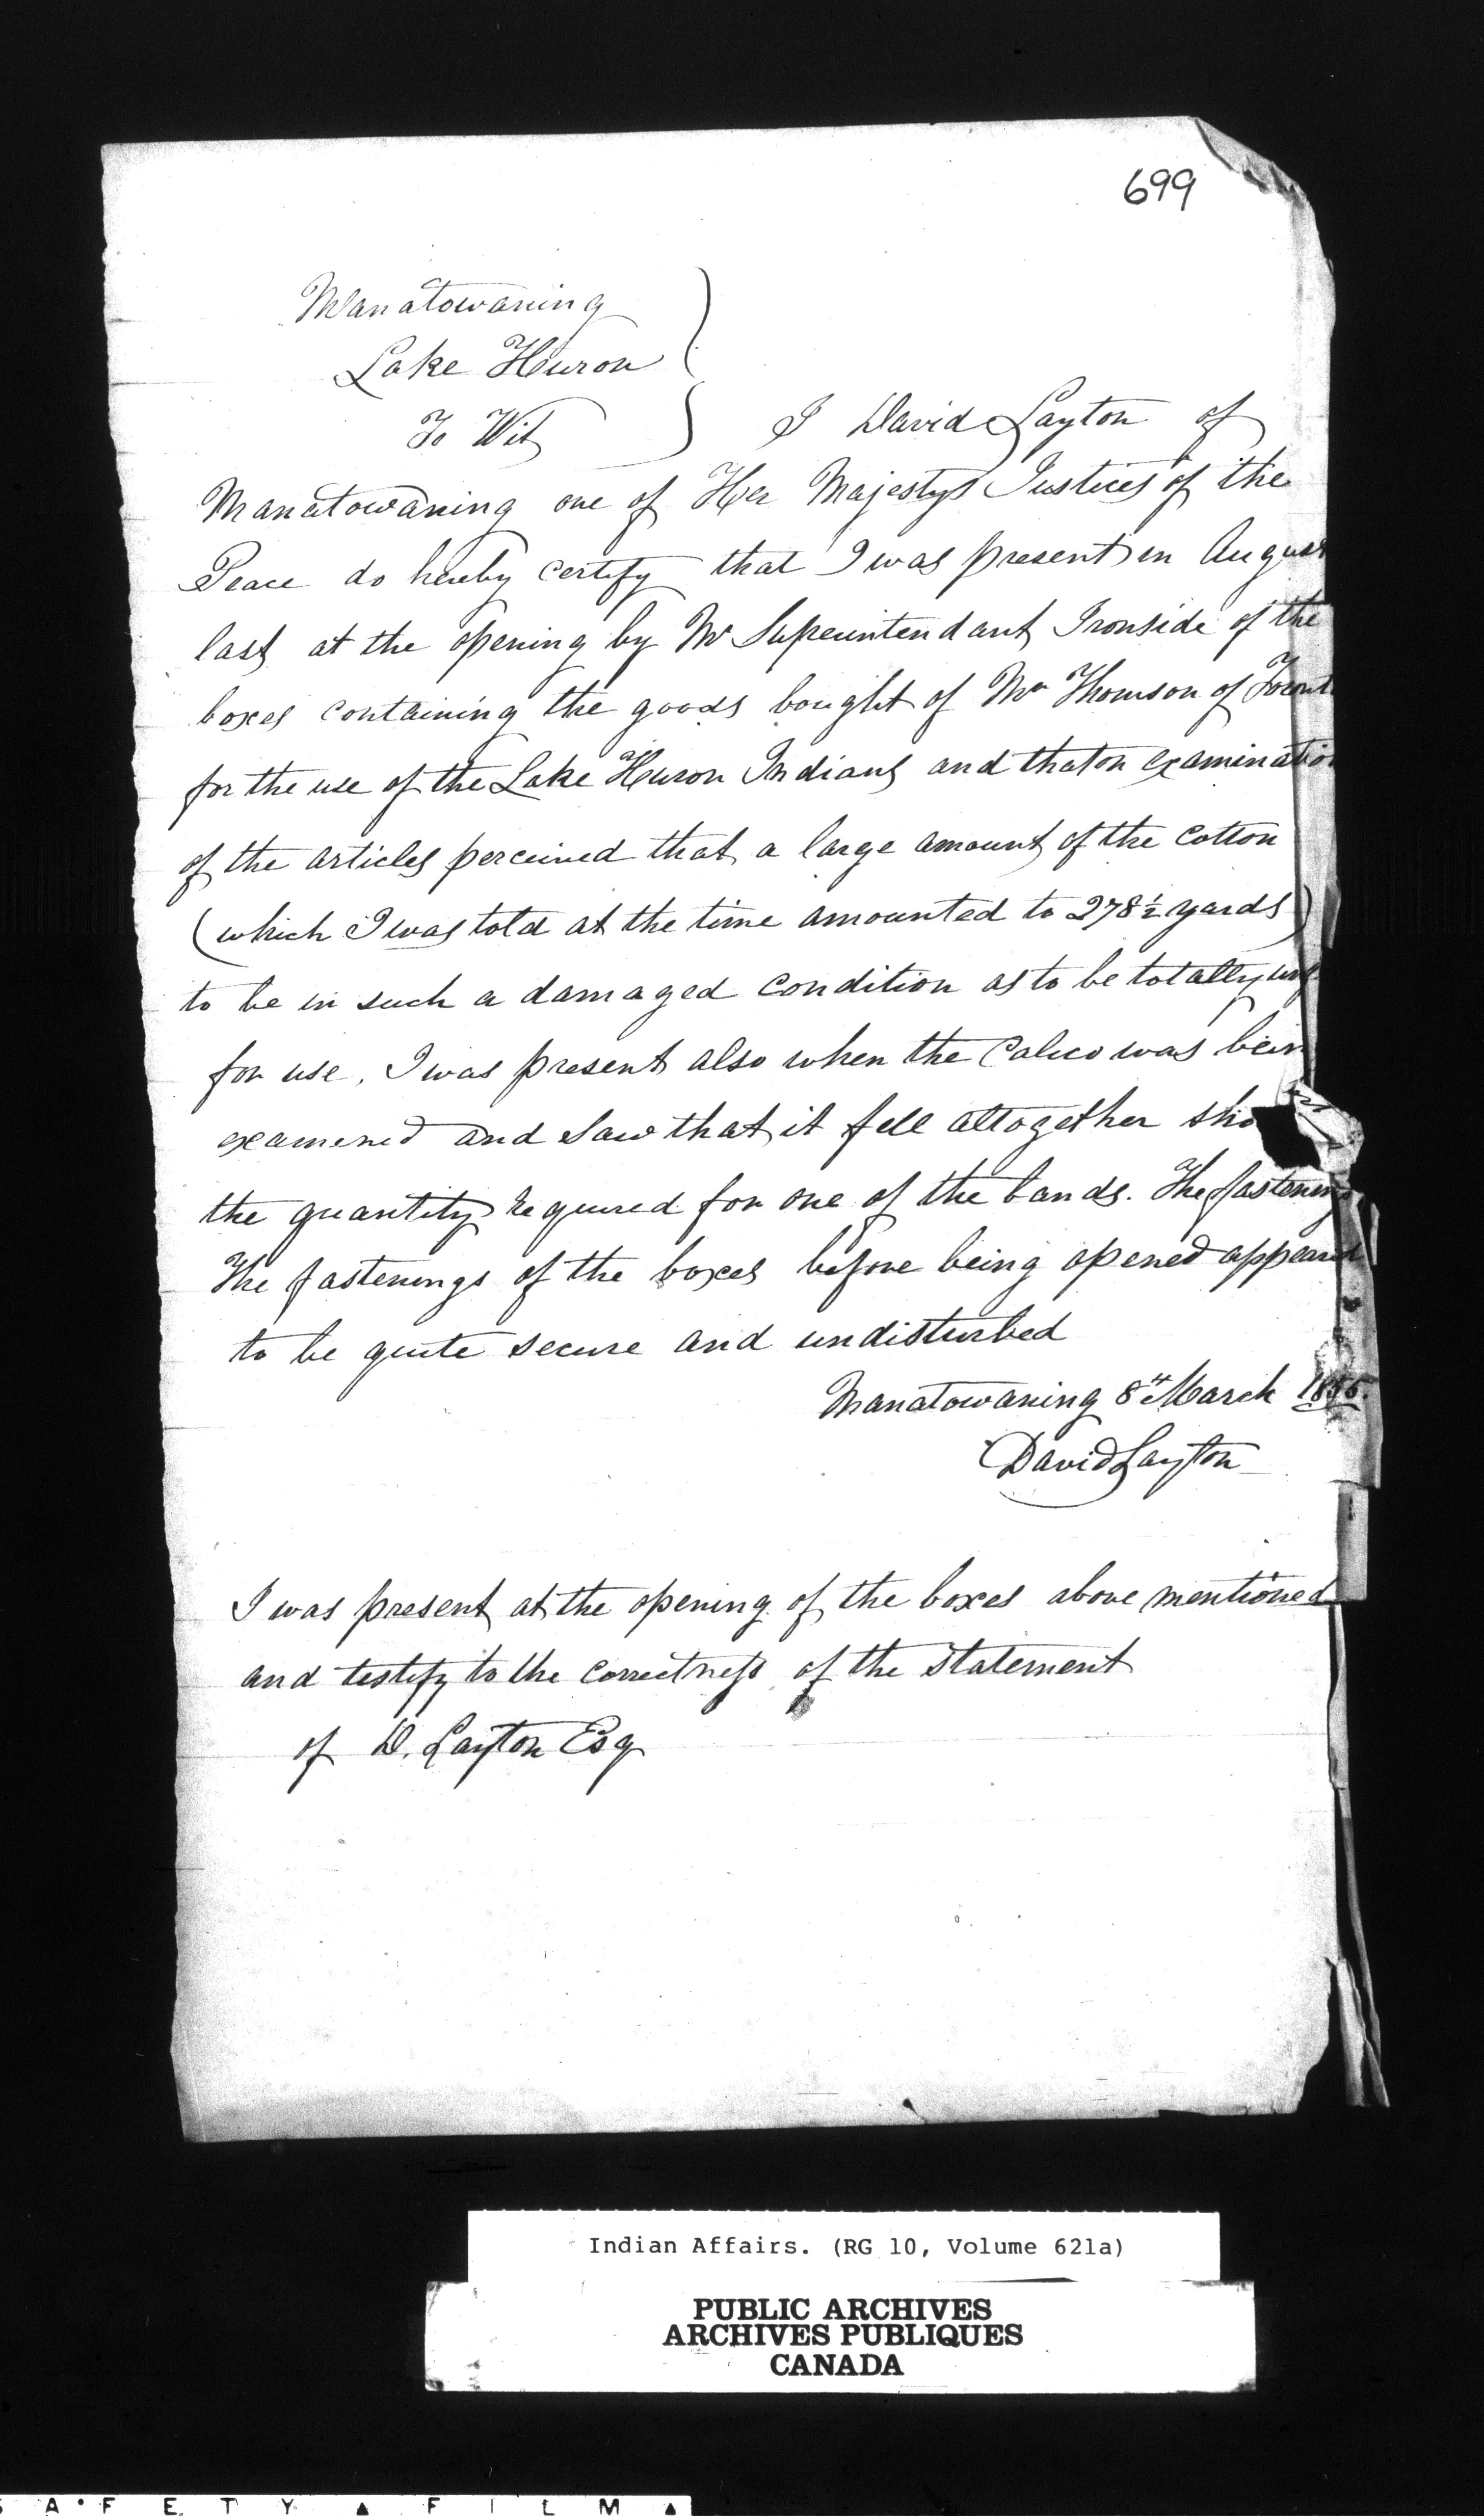 699
Manatowaning
Lake Huron
To Wit
I David Layton of
Manatowaning one of Her Majestys Justices of the
Peace do hereby certify that I was present in August
last at the opening by Mr Superintendant Ironside of the
boxes containing the goods bought of Mr Thomson of Toront
for the use of the Lake Huron Indians and that on examination
of the articles perceived that a large amount of the cotton
(which I was told at the time amounted to 278½ yards)
to be in such a damaged condition as to be totally
for use, I was present also when the Calico was bein
examined and saw that it fell altogether sho
the quantity required for one of the bands. The fastening
The fastenings of the boxes before being opened appeared
to be quite secure and undisturbed
Manatowaning 8th March
David Layton
I was present at the opening of the boxes above mentioned
and testify to the correctness of the statement
of D. Layton Esq
Indian Affairs. (RG 10, Volume 621a)
PUBLIC ARCHIVES
ARCHIVES PUBLIQUES
CANADA
S A F E T Y ▲ F I L M ▲